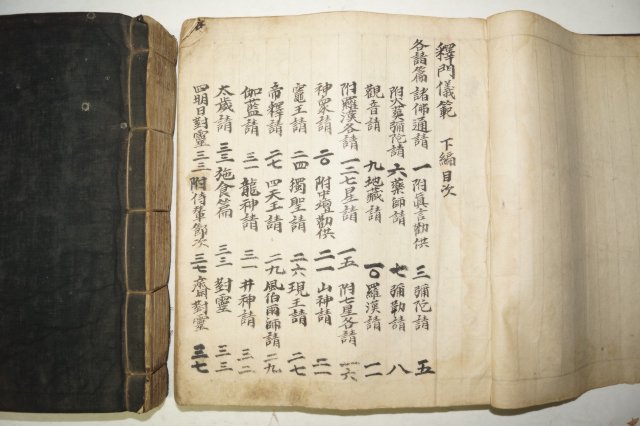 釋門儀範 下編目次
各請篇 諸佛通請 一 附眞言勸供 三 彌陀請 五
附 彌陀請 六 藥師請 七 彌勒請 八
觀音請 九 地藏請 一〇 羅漢請 一一
附羅漢各請 一三 七星請 一五 附七星各請 一六
神衆請 二〇 附中壇勸供 二一 山神請 二二
竈王請 二四 獨聖請 二六 現王請 二七
帝釋請 二七 四天王請 二九 風伯雨師請 二九
伽藍請 三一 龍神請 三一 井神請 三二
太歲請 三三 施食篇 三三 對靈 三三
四明日對靈 三三 附侍輦節次 三七 對靈 三七